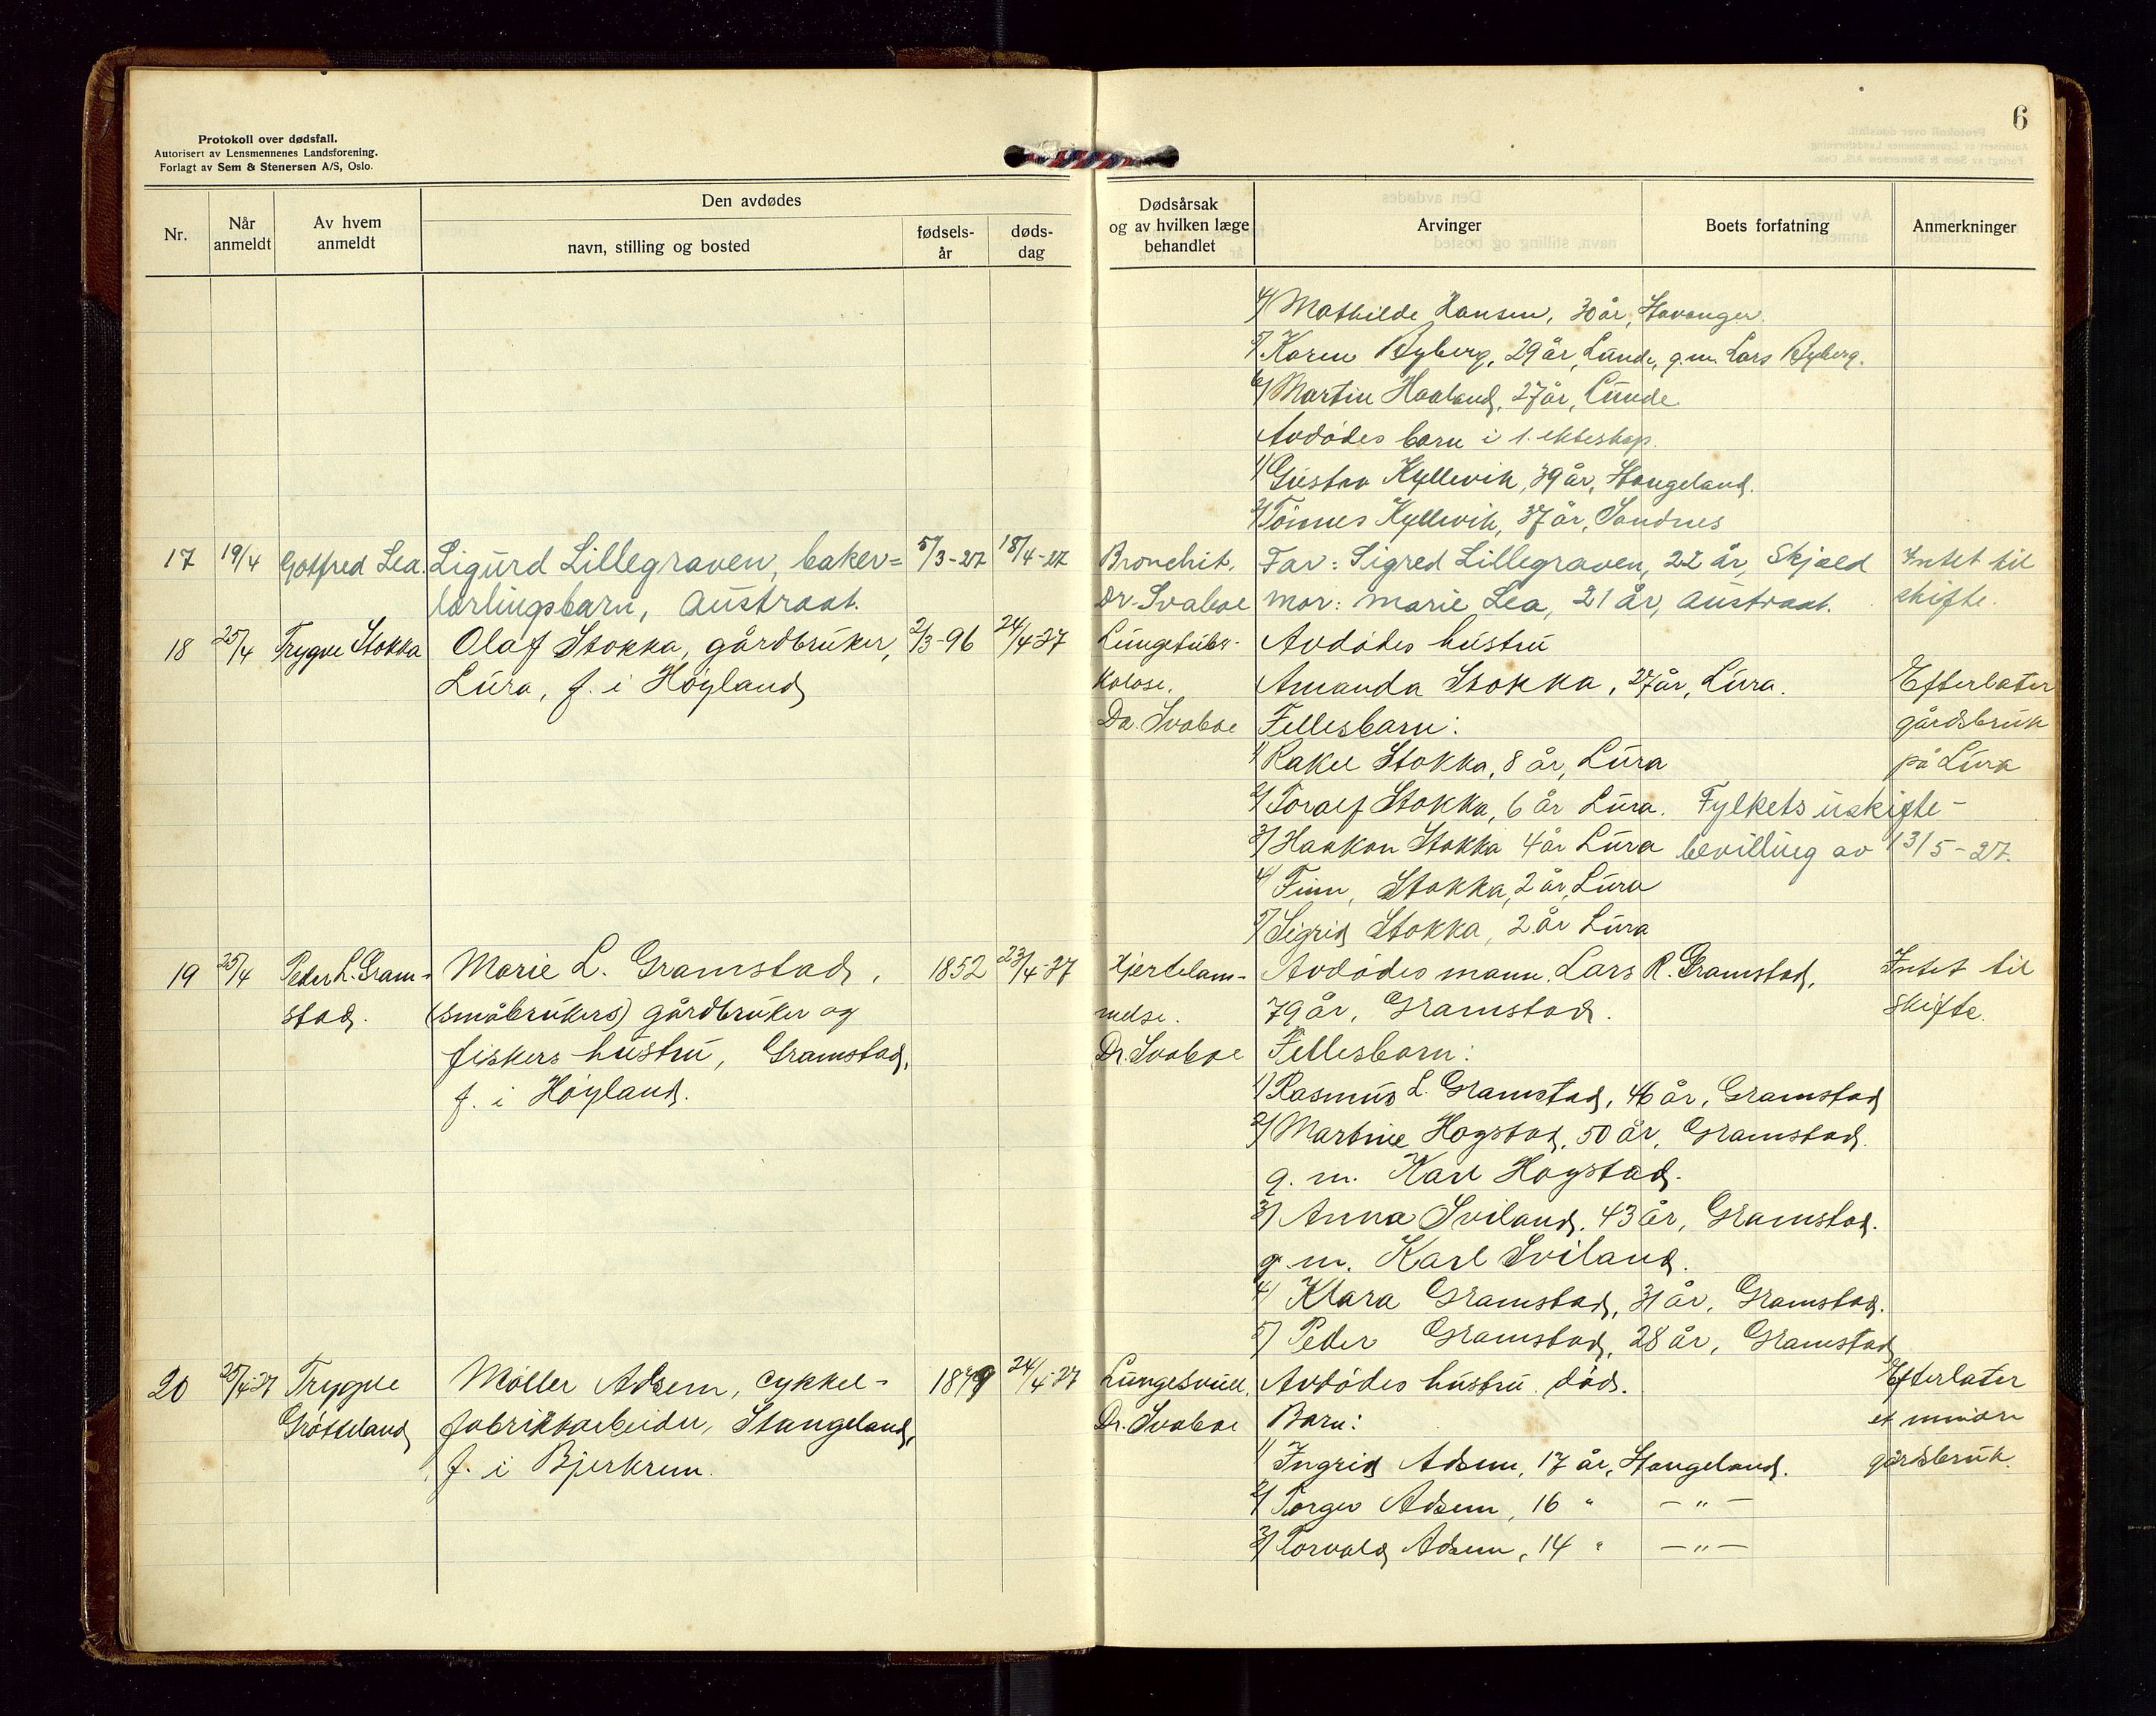 Protokoll over dødsfall.
Autorisert av Lensmennenes Landsforening.
Forlagt av Sem & Stenersen A/S, Oslo.
6
Nr.
Når anmeldt
Av hvem anmeldt
Den avdødes
navn, stilling og bosted
fødsels-år
døds-dag
Dødsårsak og av hvilken læge behandlet
Arvinger
Boets forfatning
Anmerkninger
4/ Mathilde Hansen, 30 år, Stavanger.
5/ Karen Ryberg, 29 år, Lunde, g.m. Lars Ryberg.
6/ Martin Haaland, 27 år, Lunde
Avdødes barn i 1. ekteskap.
1/ Gustav Kyllevik, 39 år, Stangeland.
2/ Tønnes Kyllevik, 37 år, Sandnes
17 19/4 Gotfred Lea. Sigurd Lillegraven, baker= 5/3-27 18/4-27 Bronchit. Far: Sigred Lillegraven, 22 år, Skjold Intet til
lærlingsbarn, Austraat. Dr. Svaboe mor: Marie Lea, 21 år, Austraat. skifte.
18 25/4 Trygve Stokka Olaf Stokka, gårdbruker, 2/3-96 24/4-27 Lungetuber- Avdødes hustru
Lura, f. i Høyland kolose. Amanda Stokka, 27 år, Lura. Efterlater
Dr. Svaboe Fellesbarn: gårdsbruk
1/ Rakel Stokka, 8 år, Lura på Lura
2/ Toralf Stokka, 6 år Lura. Fylkets uskifte-
3/ Haakon Stokka 4 år Lura bevilling av 13/5-27.
4/ Finn, Stokka, 2 år, Lura
5/ Sigrid Stokka, 2 år Lura
19 25/4 Peder L. Gram- Marie L. Gramstad, 1852 23/4-27 Hjertelam- Avdødes mann. Lars R. Gramstad, Intet til
stad. (småbrukers) gårdbruker og melse. 79 år, Gramstad. skifte.
fiskers hustru, Gramstad, Dr. Svaboe Fellesbarn:
f. i Høyland. 1/ Rasmus L. Gramstad, 46 år, Gramstad
2/ Martine Hogstad, 50 år, Gramstad.
g. m. Karl Hogstad.
3/ Anna Sviland, 43 år, Gramstad.
g. m. Karl Sviland.
4/ Klara Gramstad, 31 år, Gramstad.
5/ Peder Gramstad, 28 år, Gramstad
20 25/4-27 Trygve Møller Adsem, cykkel- 1879 24/4-27 Lungesvull. Avdødes hustru. død. Efterlater
Grøtteland fabrikkarbeider, Stangeland, Dr. Svaboe Barn: et mindre
f. i Bjerkrem. 1/ Ingrid Adsem, 17 år, Stangeland. gårdsbruk.
2/ Torger Adsem, 16 " — " —
3/ Torvald Adsem, 14 " — " —